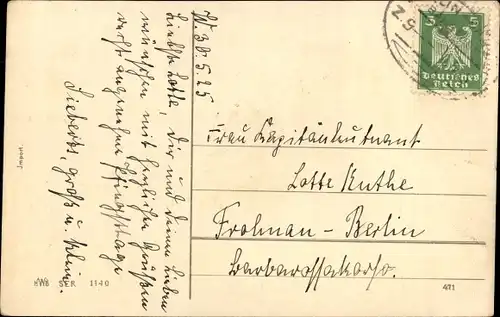 W. 30.5.25
Liebste Lotte, Dir und Deinen Lieben
wünschen mit herzlichen Grüßen
recht angenehme Pfingsttage
Sieberts, groß u. klein.
Frau Kapitänleutnant
Lotte Kuthe
Frohnau - Berlin
Barbarossakorso.
5 5
Deutsches
Reich
HWB SER 1140
471